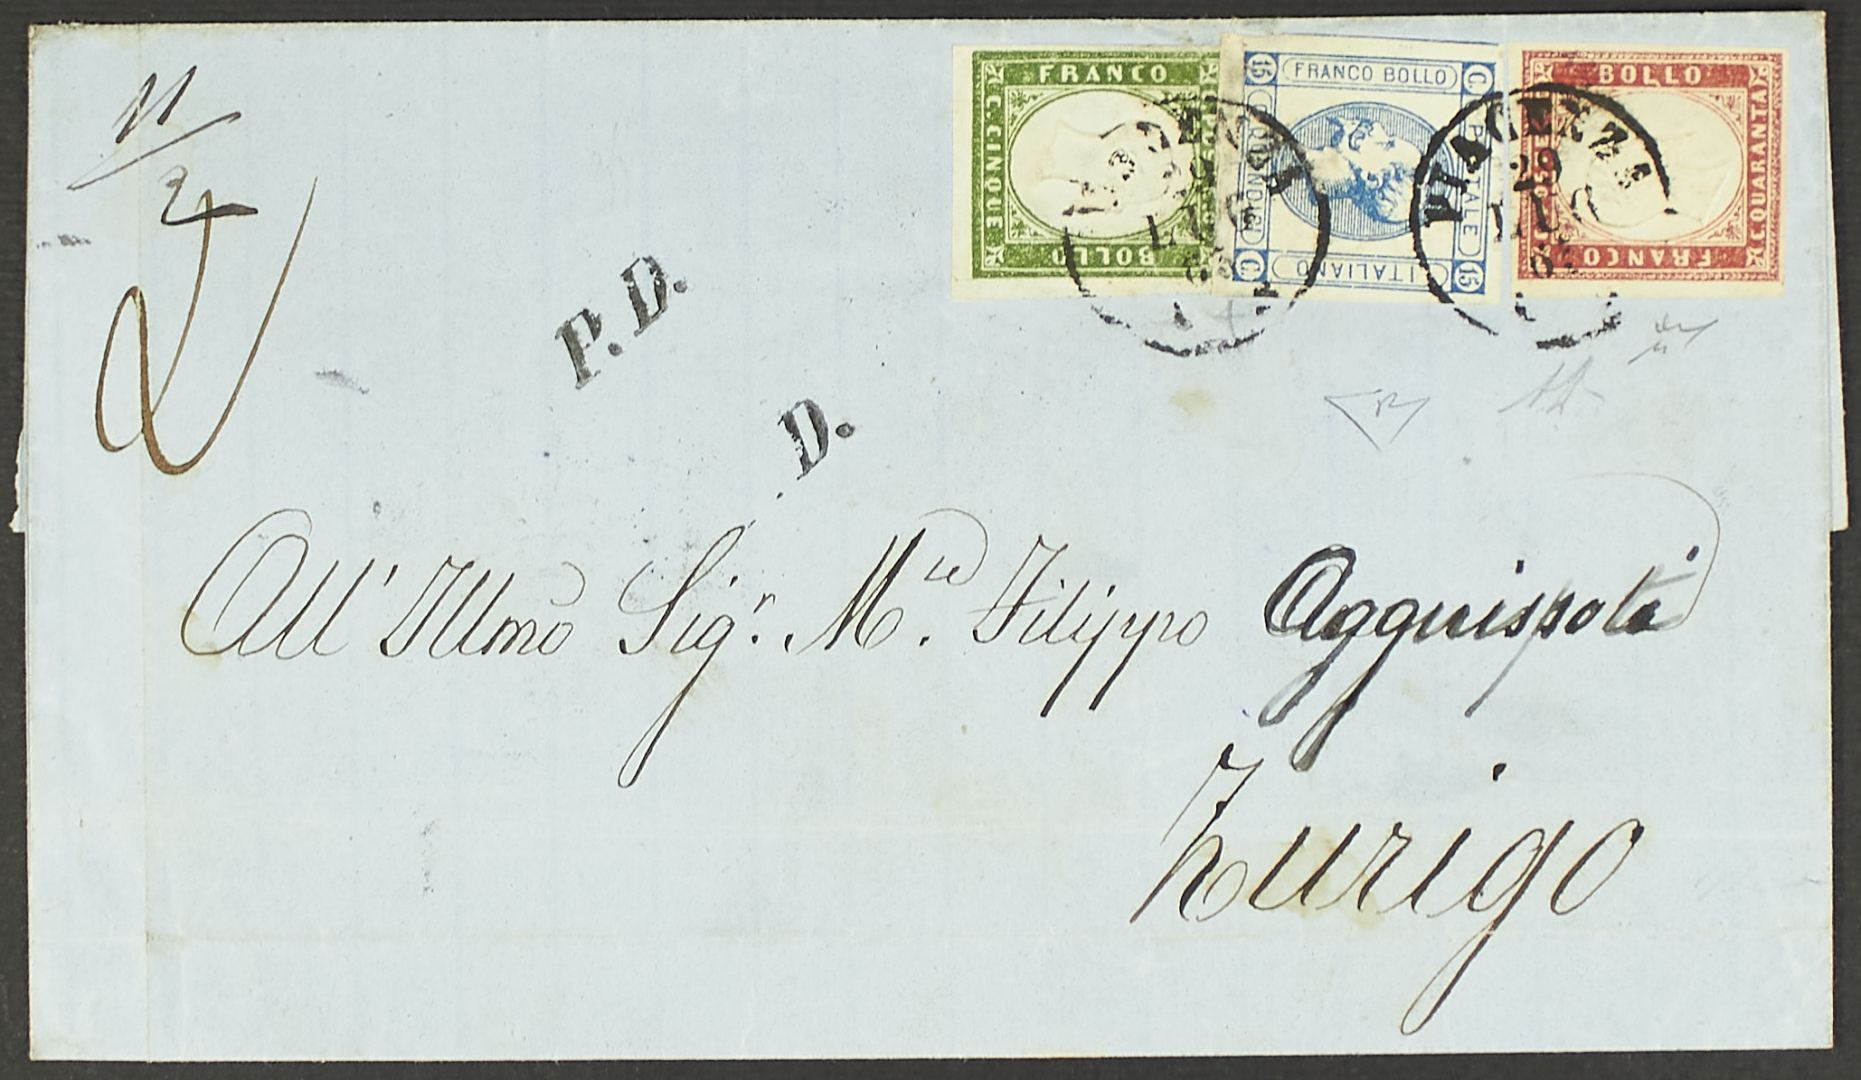 11/2
2
FRANCO
C. CINQUE
BOLLO
FRANCO BOLLO
C. POSTALE 15
ITALIANO
C. QUINDICI 15
BOLLO
C. QUARANTA
FRANCO
PIACENZA
29
LUG
63
P.D.
D.
All' Illmo Sigr. Mse. Filippo
Zurigo